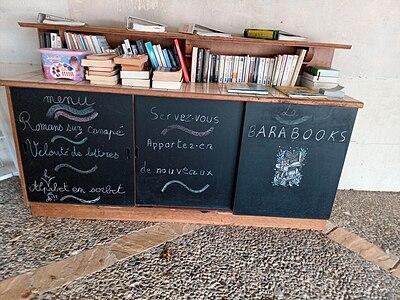 menu
Romans sur canapé
Velouté de lettres
Alphabet en sorbet
Servez-vous
Apportez-en
de nouveaux
Le
BARABOOKS